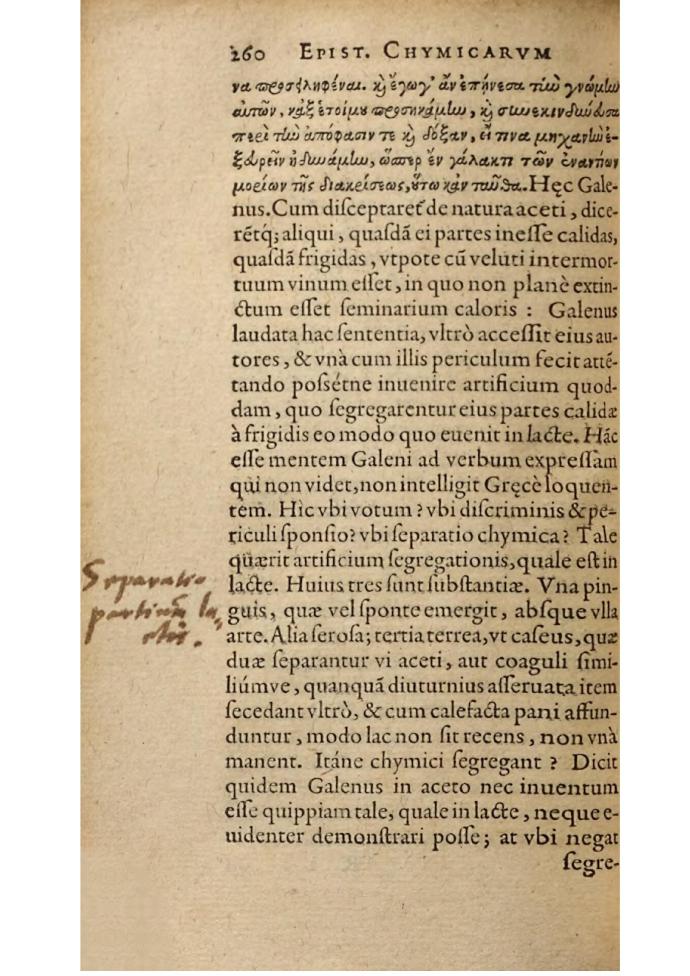 260 EPIST. CHYMICARVM
να προσειληφέναι. καὶ ἔγωγ' ἂν ἐπῄνεσα τὴν γνώμην
αὐτῶν, κἀξ ἑτοίμου προσηκάμην, καὶ συνεκινδύνευσα
περὶ τὴν ἀπόφασίν τε καὶ δόξαν, εἴ τινα μηχανὴν ἐ-
ξευρεῖν ἠδυνάμην, ὥσπερ ἐν γάλακτι τῶν ἐναντίων
μορίων τῆς διακρίσεως, οὕτω κἀνταῦθα. Hęc Gale-
nus. Cum diſceptaret᷑ de natura aceti, dice-
rétq́; aliqui, quaſdā ei partes ineſſe calidas,
quaſdā frigidas, vtpote cū veluti intermor-
tuum vinum eſſet, in quo non planè extin-
ctum eſſet ſeminarium caloris : Galenus
laudata hac ſententia, vltrò acceſſit eius au-
tores, & vnà cum illis periculum fecit attē-
tando poſsétne inuenire artificium quod-
dam, quo ſegregarentur eius partes calidæ
à frigidis eo modo quo euenit in lacte. Hāc
eſſe mentem Galeni ad verbum expreſſam
qui non videt, non intelligit Gręcè loquen-
tem. Hîc vbi votum? vbi diſcriminis & pe-
riculi ſponſio? vbi ſeparatio chymica? Tale
quærit artificium ſegregationis, quale eſt in
lacte. Huius tres ſunt ſubſtantiæ. Vna pin-
guis, quæ vel ſponte emergit, abſque vlla
arte. Alia ſeroſa; tertia terrea, vt caſeus, quæ
duæ ſeparantur vi aceti, aut coaguli ſimi-
liúmve, quanquā diuturnius aſſeruata item
ſecedant vltrò, & cum calefacta pani affun-
duntur, modo lac non ſit recens, non vnà
manent. Itáne chymici ſegregant? Dicit
quidem Galenus in aceto nec inuentum
eſſe quippiam tale, quale in lacte, neque e-
uidenter demonſtrari poſſe; at vbi negat
ſegre-
Separatio
partium la
ctis.